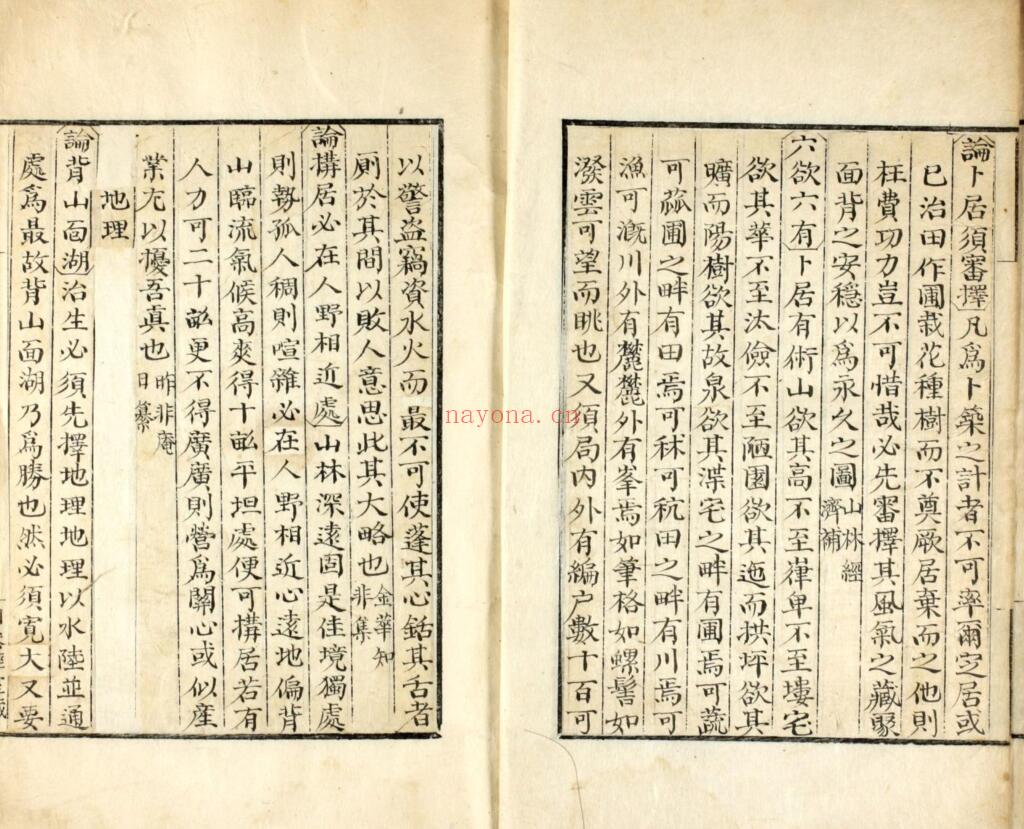 論卜居須審擇凡爲卜築之計者不可率爾定居或
已治田作圃栽花種樹而不奠厥居棄而之他則
枉費功力豈不可惜哉必先審擇其風氣之藏聚
面背之安穩以爲永久之圖山林經濟補
六欲六有卜居有術山欲其高不至嵂卑不至塿宅
欲其華不至汰儉不至陋園欲其迤而拱坪欲其
曠而陽樹欲其故泉欲其渫宅之畔有圃焉可蔬
可苽圃之畔有田焉可秫可秔田之畔有川焉可
漁可漑川外有麓麓外有峯焉如筆格如螺髻如
潑雲可望而眺也又須局內外有編户數十百可
以警盜竊資水火而最不可使蓬其心銛其舌者
厠於其間以敗人意思此其大略也金華知非集
論搆居必在人野相近處山林深遠固是佳境獨處
則勢孤人稠則喧雜必在人野相近心遠地偏背
山臨流氣候高爽得十畝平坦處便可搆居若有
人力可二十畝更不得廣廣則營爲關心或似産
業尤以擾吾真也昨非庵日纂
地理
論背山面湖治生必須先擇地理地理以水陸並通
處爲最故背山面湖乃爲勝也然必須寛大又要
nayona.cn